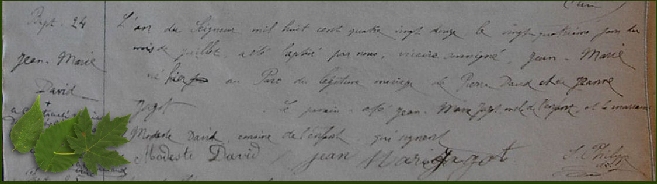 Bapt. 24
Jean-Marie
David
L'an du Seigneur mil huit cent quatre vingt douze le vingt quatrième jour du
mois de juillet a été baptisé par nous, vicaire soussigné Jean-Marie
né hier au du légitime mariage de Pierre David et de Jeanne
Jagot Le parrain a été Jean-Marie Jagot oncle de l'enfant, et la marraine
Modeste David cousine de l'enfant qui signent
Modeste David Jean Marie Jagot